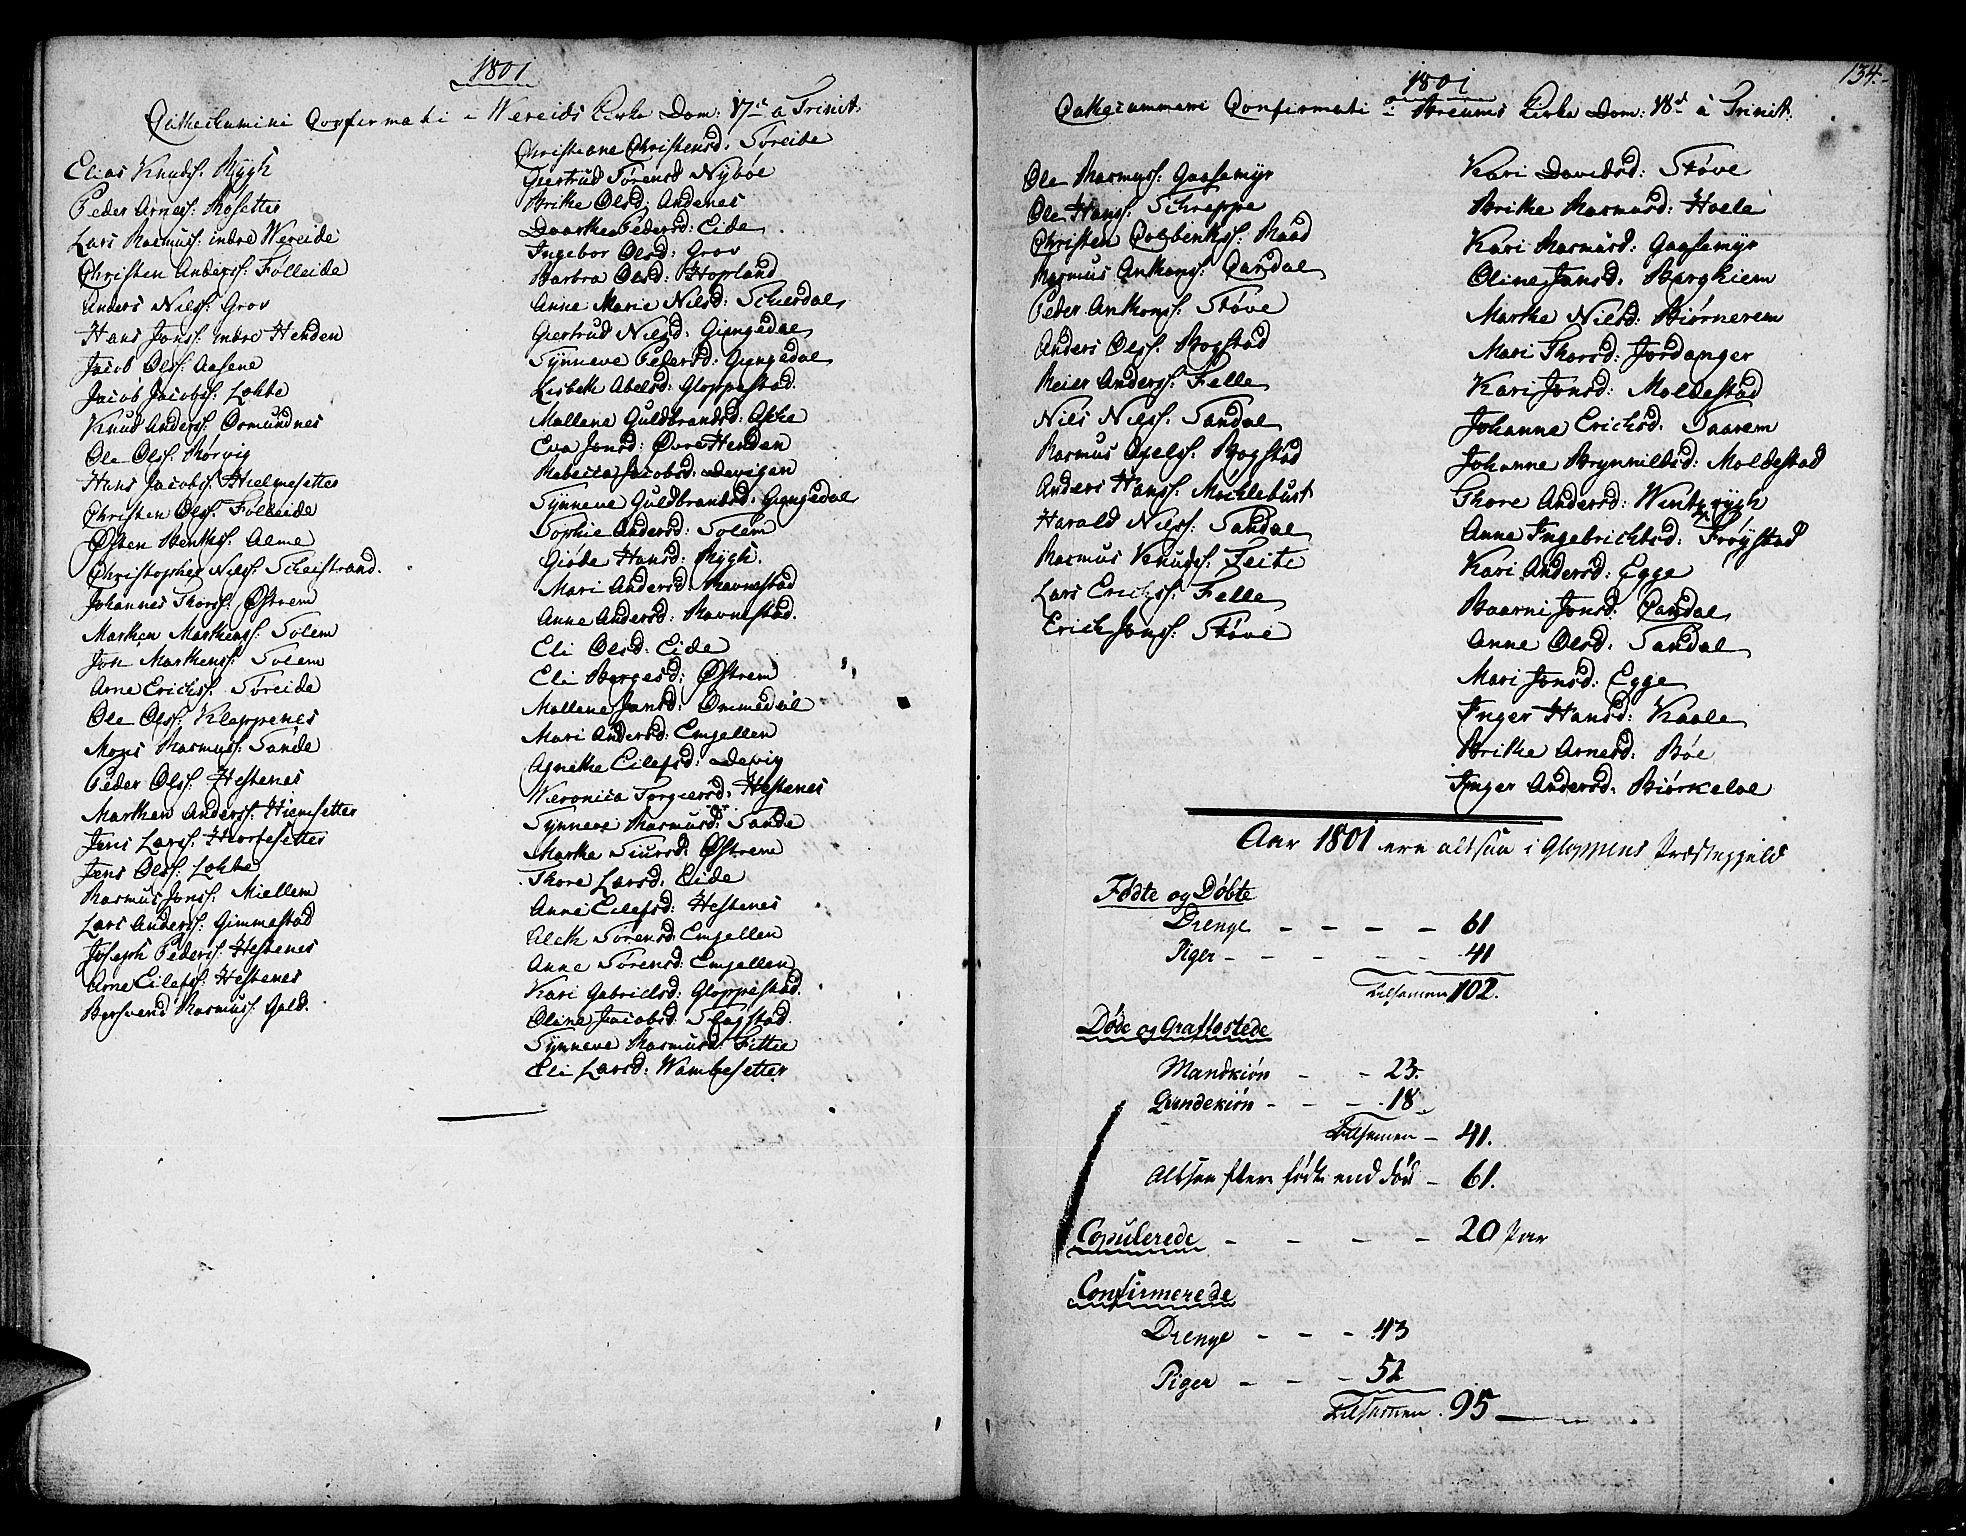 1801
Cathechumini Confirmati i Wereids Kirke Dom: 17de a Trinit:
Elias Knuds: Rygh
Peder Arnes: Rosetter
Lars Rasmus: indre Wereide
Christen Anders: Følleide
Anders Nils: Grov
Hans Jons: indre Henden
Jacob Ols: Aasene
Jacob Jacobs: Lothe
Knud Anders: Osmundnes
Ole Ols: Rørvig
Hans Jacobs: Hielmesetter
Christen Ols: Følleide
Østen Benths: Alme
Christopher Nils: Scheistrand.
Johannes Thors: Østrem
Marthen Marthens: Solem
Jon Marthens: Solem
Arne Erichs: Søreide
Ole Ols: Kleppenes
Mons Rasmus: Sande
Peder Ols: Hestenes
Marthen Anders: Hiemsetter
Jens Lars: Hiortesetter
Jens Ols: Lothe
Rasmus Jons: Miellem
Lars Anders: Gimmestad
Joseph Peders: Hestenes
Arne Eilefs: Hestenes
Bersvend Rasmus: Gald.
Christiane Christensd: Søreide
Giertrud Sørensd Nybøe
Brithe Olsd: Andenes
Dorthe Pedersd: Eide
Ingebor Olsd: Grov
Barbra Olsd: Hopland
Anne Marie Nilsd: Schierdal
Giertrud Nilsd: Giengedal
Synneve Petersd: Giengedal
Lisbeth Abelsd: Gloppestad.
Mallene Guldbrandsd: Aske
Eva Jonsd: Øvre Henden
Rebecca Jacobsd: Devigen
Synneve Guldbrandsd: Giengedal
Sophie Andersd: Solem
Giøde Hansd: Rygh.
Mari Andersd: Ravnestad
Anne Andersd: Ravnestad.
Eli Olsd: Eide
Eli Børgesd: Østrem
Mallene Jonsd: Ommedal
Mari Andersd: Emhellen
Agnethe Eilefsd: Devig
Weronica Torgiersd: Hestenes
Synneve Rasmusdr: Sande
Marthe Siursd: Østrem
Thore Larsd: Eide
Anne Eilefsd: Hestenes
Aleth Sørensd Emhellen
Anne Sørensd: Emhellen
Kari Gabrielsd: Gloppestad.
Oline Jacobsd: Slagstad.
Synneve Rasmusd: Fittie
Eli Larsd: Wambesetter
134.
1801
Cathecummeni Confirmati i Breums Kirke Dom: 18de a Trinit:
Ole Rasmus: Gaasemyr
Ole Hans: Schreppe
Christen Colbenths: Raad
Rasmus Anthons: Sandal
Peder Anthons: Støve
Anders Ols: Bogstad
Reier Anders: Felle
Nils Nils: Sandal
Rasmus Axels: Bogstad
Anders Hans: Mychlebust
Harald Nils: Sandal
Rasmus Knuds: Feite
Lars Erichs: Felle
Erich Jons: Støve
Kari Davidsd: Støve
Brithe Rasmusd: Hoele
Kari Rasmusd: Gaasemyr
Oline Jonsd: Bergheim
Marthe Nilsd: Biørnerem
Mari Thorsd: Jordanger
Kari Jonsd: Moldestad
Johanne Erichsd: Taarem
Johanne Brynnildsd: Moldestad
Thore Andersd: Wintrrygh
Anne Ingebrichtsd: Frøystad
Kari Andersd: Egge
Baarni Jonsd: Sandal
Anne Olsd: Sandal
Mari Jonsd: Egge
Inger Hansd: Kaale
Brithe Arnesd: Bøe
Inger Andersd: Biørkeloe
Aar 1801 ere altsaa i Gloppens Præstegjeld
Fødte og Døbte
Drenge - - - - 61
Piger - - - - - 41
Tilsamen 102.
Døde og Graffæstede
Mandkiøn - - 23.
Qvindekiøn - - - 18.
Tilsamen - 41.
Altsaa flere fødte end død - 61.
Copulerede - - - - 20 Par
Confirmerede
Drenge - - - 43
Piger - - - 52
Tilsamen. 95